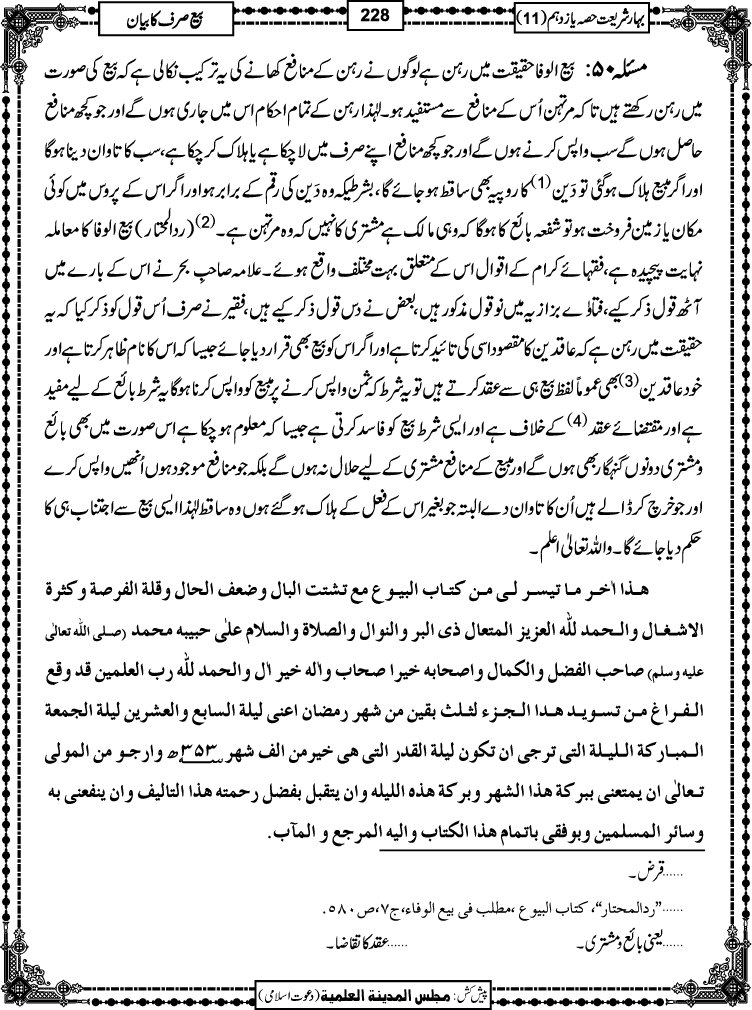 بہار شریعت حصہ یازدہم (11)
228
بیع صرف کا بیان
مسئلہ ۵۰: بیع الوفا حقیقت میں رہن ہے لوگوں نے رہن کے منافع کھانے کی یہ ترکیب نکالی ہے کہ بیع کی صورت
میں رہن رکھتے ہیں تاکہ مرتہن اُس کے منافع سے مستفید ہو۔ لہٰذا رہن کے تمام احکام اس میں جاری ہوں گے اور جو کچھ منافع
حاصل ہوں گے سب واپس کرنے ہوں گے اور جو کچھ منافع اپنے صرف میں لاچکا ہے یا ہلاک کرچکا ہے، سب کا تاوان دینا ہوگا
اور اگر مبیع ہلاک ہوگئی تو دَین (1) کا روپیہ بھی ساقط ہو جائے گا، بشرطیکہ وہ دَین کی رقم کے برابر ہو اور اگر اس کے پروس میں کوئی
مکان یا زمین فروخت ہو تو شفعہ بائع کا ہوگا کہ وہی مالک ہے مشتری کا نہیں کہ وہ مرتہن ہے۔ (2) (ردالمحتار) بیع الوفا کا معاملہ
نہایت پیچیدہ ہے، فقہائے کرام کے اقوال اس کے متعلق بہت مختلف واقع ہوئے۔ علامہ صاحبِ بحر نے اس کے بارے میں
آٹھ قول ذکر کیے، فتاوٰے بزازیہ میں نو قول مذکور ہیں، بعض نے دس قول ذکر کیے ہیں، فقیر نے صرف اُس قول کو ذکر کیا کہ یہ
حقیقت میں رہن ہے کہ عاقدین کا مقصود اسی کی تائید کرتا ہے اور اگر اس کو بیع بھی قرار دیا جائے جیسا کہ اس کا نام ظاہر کرتا ہے اور
خود عاقدین (3) بھی عموماً لفظ بیع ہی سے عقد کرتے ہیں تو یہ شرط کہ ثمن واپس کرنے پر مبیع کو واپس کرنا ہوگا یہ شرط بائع کے لیے مفید
ہے اور مقتضائے عقد (4) کے خلاف ہے اور ایسی شرط بیع کو فاسد کرتی ہے جیسا کہ معلوم ہو چکا ہے اس صورت میں بھی بائع
و مشتری دونوں گنہگار بھی ہوں گے اور مبیع کے منافع مشتری کے لیے حلال نہ ہوں گے بلکہ جو منافع موجود ہوں اُنھیں واپس کرے
اور جو خرچ کر ڈالے ہیں اُن کا تاوان دے البتہ جو بغیر اس کے فعل کے ہلاک ہوگئے ہوں وہ ساقط لہٰذا ایسی بیع سے اجتناب ہی کا
حکم دیا جائے گا۔ واللہ تعالیٰ اعلم۔
هذا اخر ما تيسر لى من كتاب البيوع مع تشتت البال وضعف الحال وقلة الفرصة وكثرة
الاشغال والحمد لله العزيز المتعال ذى البر والنوال والصلاة والسلام على حبيبه محمد (صلى الله تعالى
عليه وسلم) صاحب الفضل والكمال واصحابه خيرا صحاب واله خير ال والحمد لله رب العلمين قد وقع
الفراغ من تسويد هدا الجزء لثلث بقين من شهر رمضان اعنى ليلة السابع والعشرين ليلة الجمعة
المباركة الليلة التى ترجى ان تكون ليلة القدر التى هى خيرمن الف شهر ۳۵۳اھ وارجو من المولى
تعالى ان يمتعنى ببركة هذا الشهر وبركة هذه الليله وان يتقبل بفضل رحمته هذا التاليف وان ينفعنى به
وسائر المسلمين وبوفقى باتمام هذا الكتاب واليه المرجع و المآب.
......قرض۔
......”ردالمحتار“، كتاب البيوع ،مطلب فى بيع الوفاء،ج۷،ص۵۸۰.
......یعنی بائع و مشتری۔ ......عقد کا تقاضا۔
پیش کش: مجلس المدينة العلمية (دعوت اسلامی)